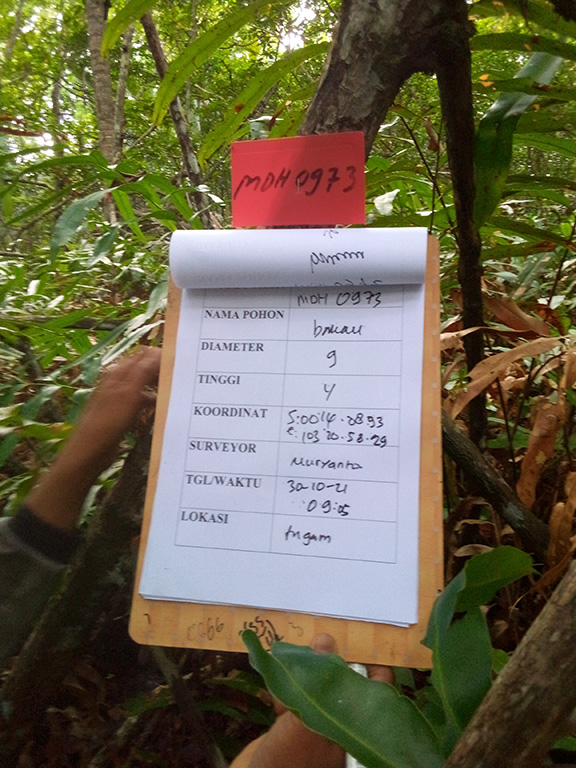 MDH 0973
MDH 0973
NAMA POHON bakau
DIAMETER 9
TINGGI 4
KOORDINAT S:00.14.28.93
E:103.20.58.29
SURVEYOR Muryanto
TGL/WAKTU 30-10-21
09:05
LOKASI tugam